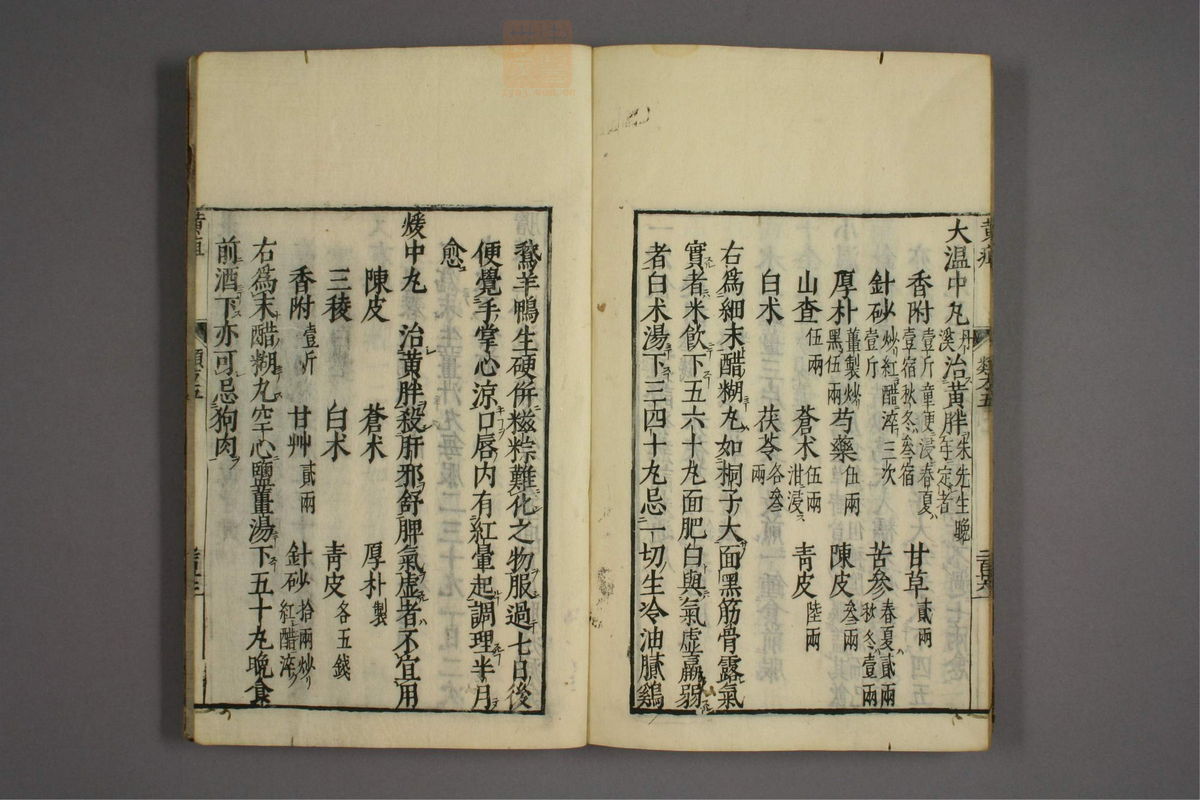 大温中丸 丹溪 治黄胖 朱先生晚年定者
香附 壹斤童便浸春夏壹宿秋冬叁宿 甘草 貳兩
針砂 炒紅醋淬三次壹斤 苦参 春夏貳兩秋冬壹兩
厚朴 薑製炒黑伍兩 芍藥 伍兩 陳皮 叁兩
山查 伍兩 蒼术 伍兩泔浸 青皮 陸兩
白术 茯苓 各叁兩
右爲細末醋糊丸如桐子大面黑筋骨露氣
實者米飲下五六十丸面肥白與氣虛羸弱
者白术湯下三四十丸忌一切生冷油膩鷄
鵞羊鴨生硬併糍粽難化之物服過七日後
便覺手掌心凉口唇内有紅暈起調理半月
愈
煖中丸 治黄胖殺肝邪舒脾氣虛者不宜用
陳皮 蒼术 厚朴 製
三稜 白术 青皮 各五錢
香附 壹斤 甘艸 貳兩 針砂 拾兩炒紅醋淬
右爲末醋糊丸空心鹽薑湯下五十丸晩食
前酒下亦可忌狗肉